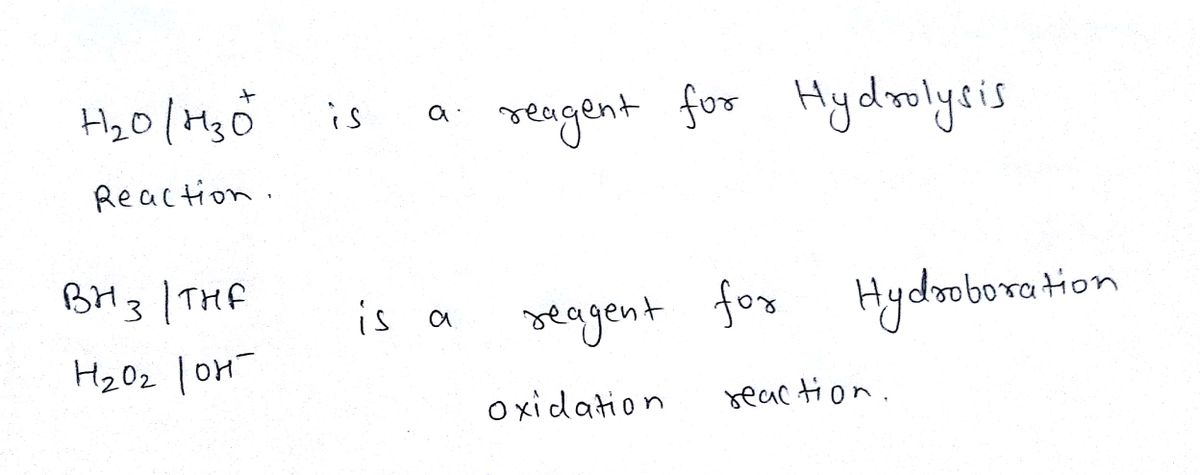 H₂O/H₃O⁺ is a reagent for Hydrolysis
Reaction.
BH₃/THF is a reagent for Hydroboration
H₂O₂/OH⁻
oxidation reaction.